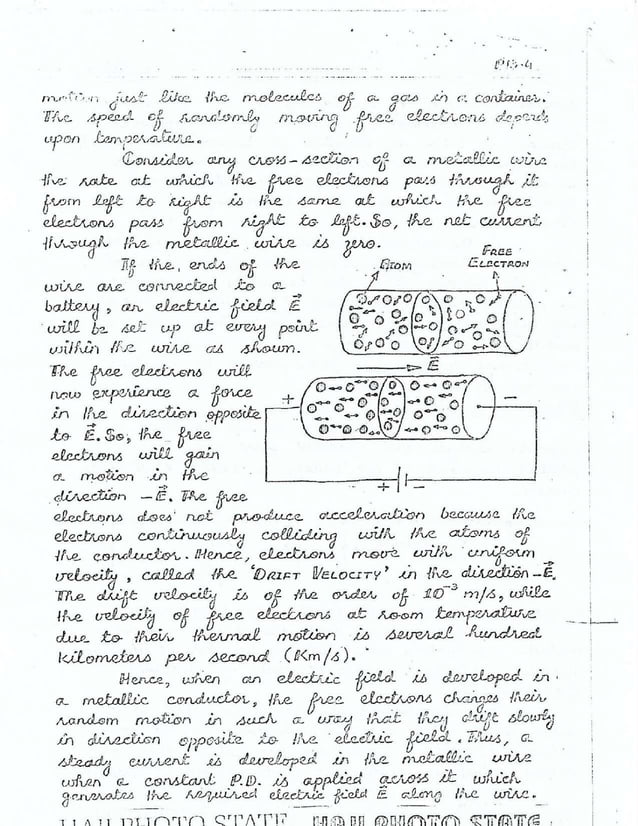 1915-4
motion just like the molecules of a gas in a container.
The speed of randomly moving free electrons depends
upon temperature.
Consider any cross-section of a metallic wire
the rate at which the free electrons pass through it
from left to right is the same at which the free
electrons pass from right to left. So, the net current
through the metallic wire is zero.
If the, ends of the
wire are connected to a
battery, an electric field E⃗
will be set up at every point
within the wire as shown.
The free electrons will
now experience a force
in the direction opposite
to E⃗. So, the free
electrons will gain
a motion in the
direction -E⃗. The free
ATOM
FREE
ELECTRON
E⃗
+
-
+
-
electrons does not produce acceleration because the
electrons continuously colliding with the atoms of
the conductor. Hence, electrons move with uniform
velocity, called the 'DRIFT VELOCITY' in the direction -E⃗.
The drift velocity is of the order of 10⁻³ m/s, while
the velocity of free electrons at room temperature
due to their thermal motion is several hundred
kilometers per second (Km/s).
Hence, when an electric field is developed in
a metallic conductor, the free electrons changes their
random motion in such a way that they drift slowly
in direction opposite to the electric field. Thus, a
steady current is developed in the metallic wire
when a constant P.D. is applied across it which
generates the required electric field E⃗ along the wire.
HAJI PHOTO STATE HAJI PHOTO STATE